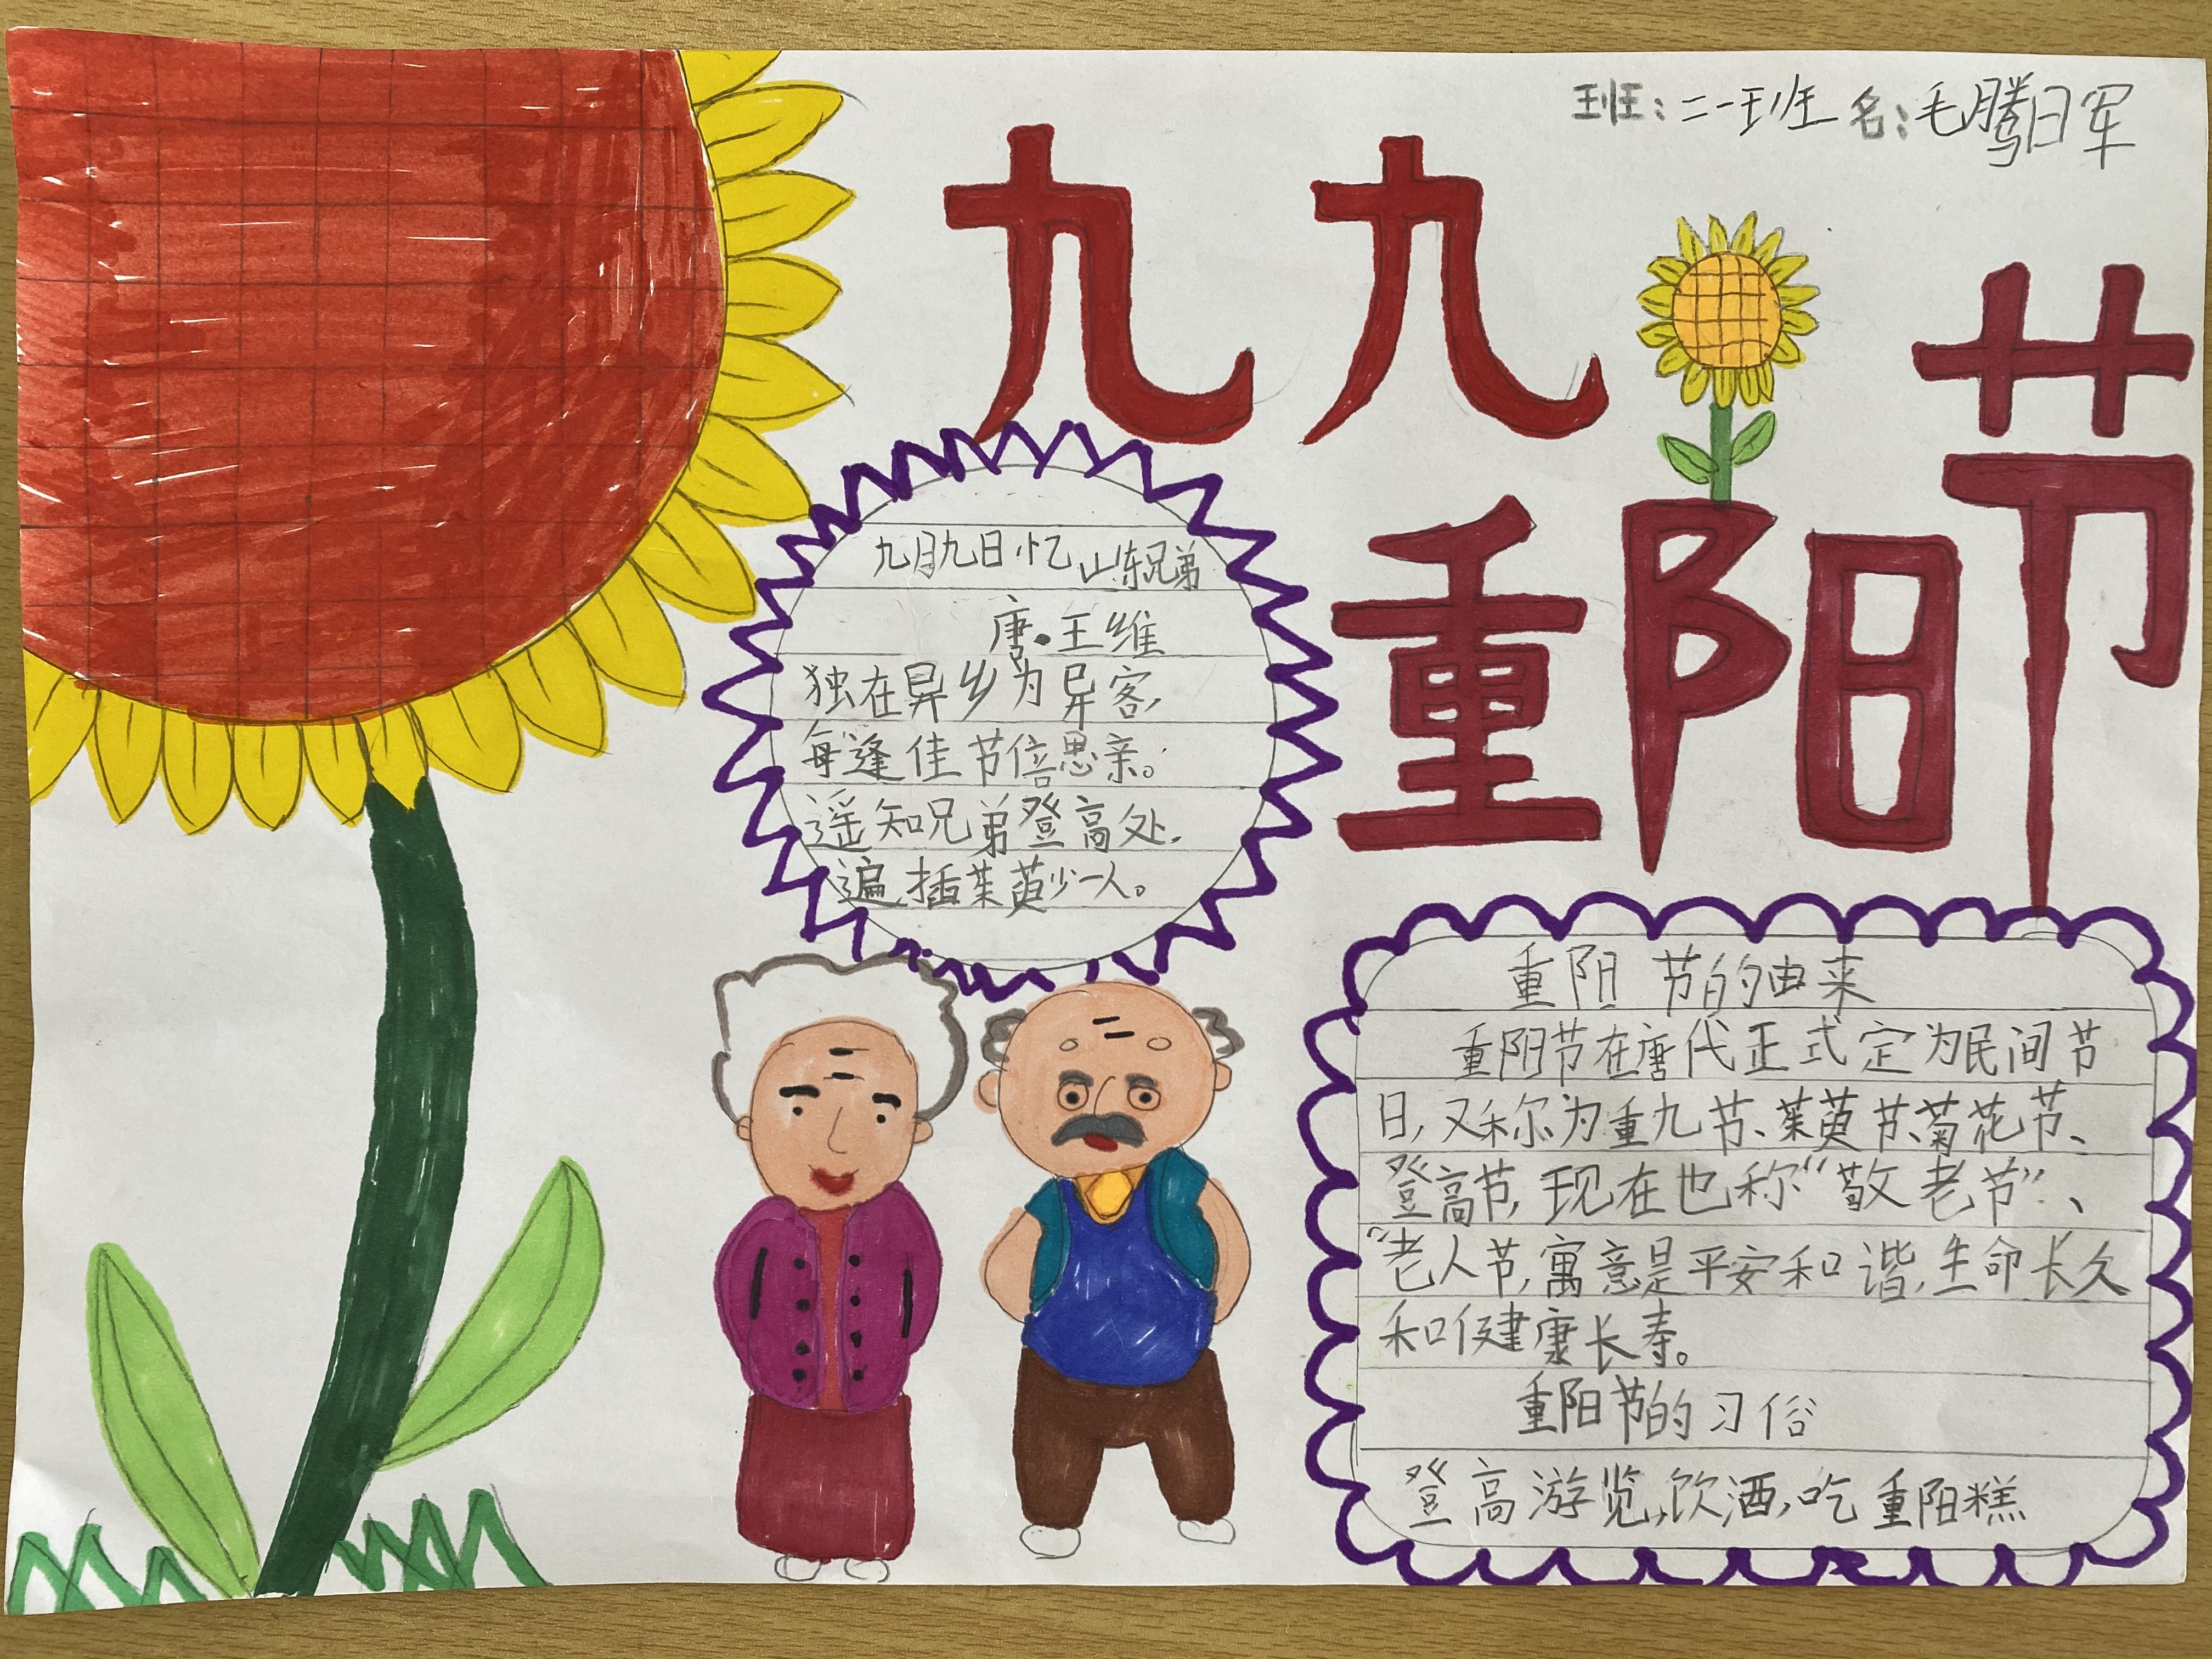 班：二一班 名：毛腾日军
九九
重阳节
九月九日忆山东兄弟
唐·王维
独在异乡为异客，
每逢佳节倍思亲。
遥知兄弟登高处，
遍插茱萸少一人。
重阳 节的由来
重阳节在唐代正式定为民间节
日，又称为重九节、茱萸节、菊花节、
登高节，现在也称“敬老节”、
“老人节，寓意是平安和谐，生命长久
和健康长寿。
重阳节的习俗
登高游览，饮酒，吃重阳糕